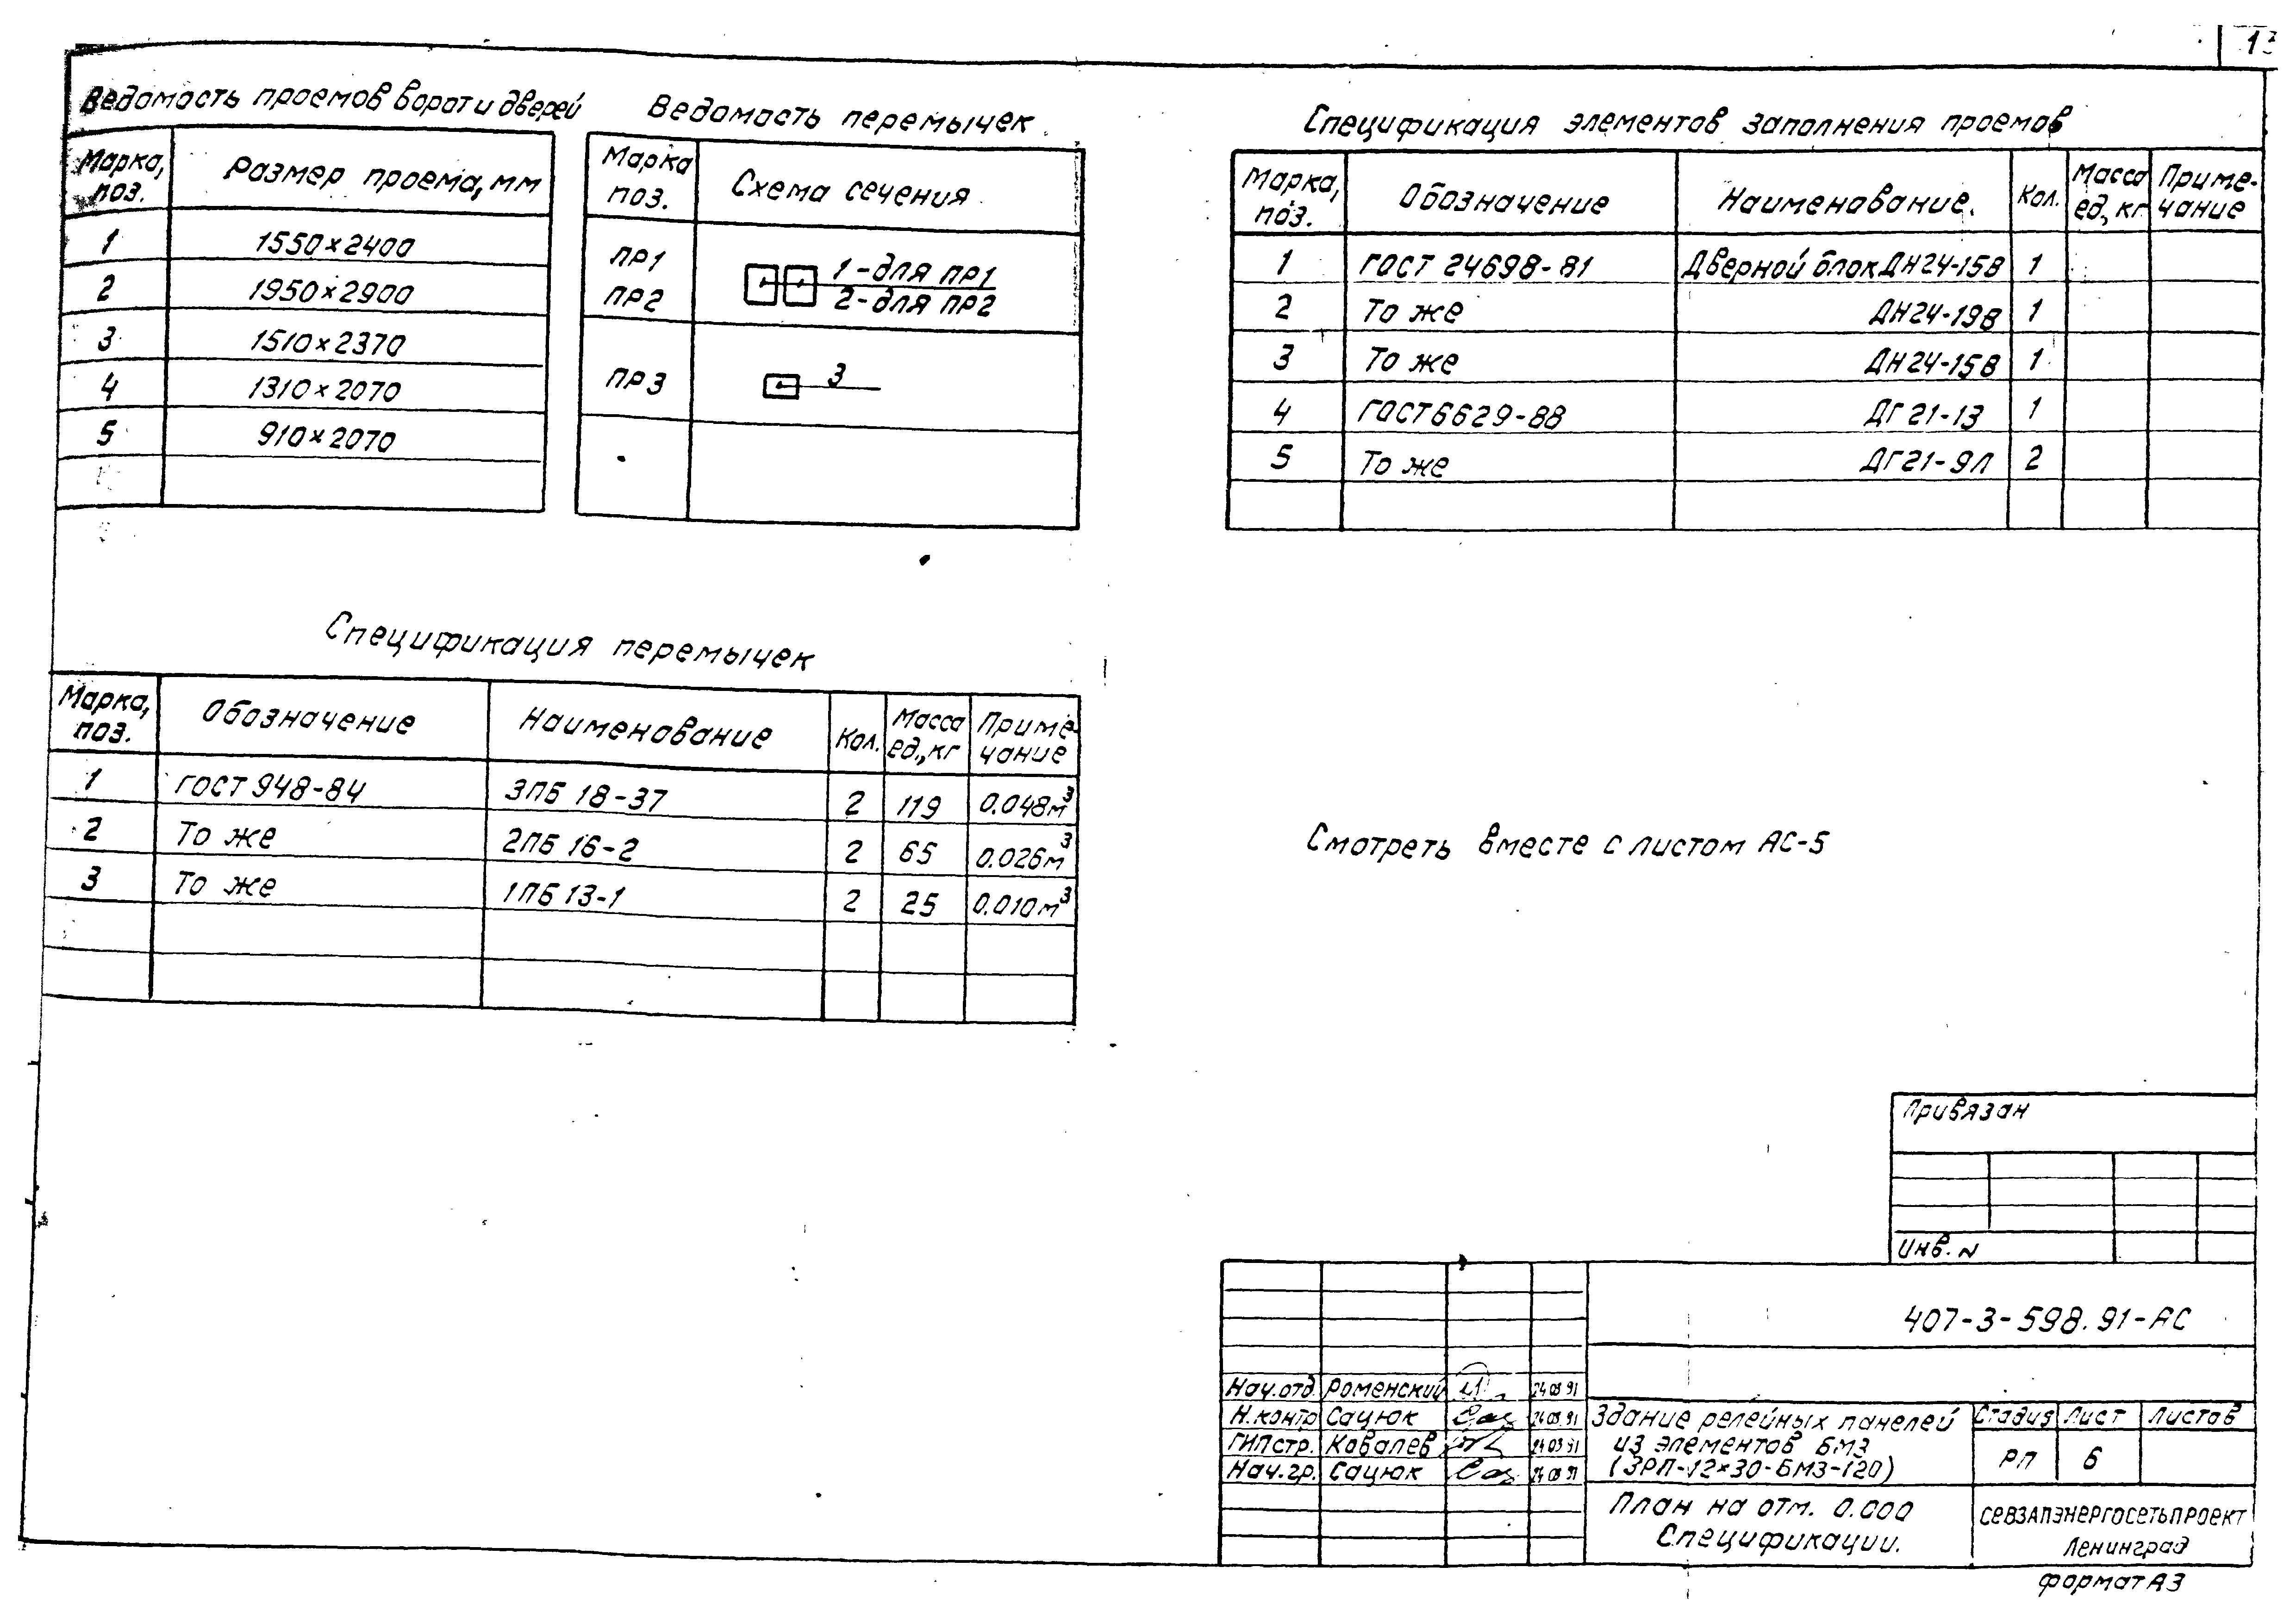 Ведомость проемов ворот и дверей
Марка, поз. Размер проема, мм
1 1550×2400
2 1950×2900
3 1510×2370
4 1310×2070
5 910×2070
Ведомость перемычек
Марка поз. Схема сечения
ПР1 1-для ПР1
ПР2 2-для ПР2
ПР3 3
Спецификация элементов заполнения проемов
Марка, поз. Обозначение Наименование. Кол. Масса ед, кг Приме-чание
1 ГОСТ 24698-81 Дверной блок ДН24-15В 1
2 То же ДН24-19В 1
3 То же ДН24-15В 1
4 ГОСТ 6629-88 ДГ21-13 1
5 То же ДГ21-9Л 2
Спецификация перемычек
Марка, поз. Обозначение Наименование Кол. Масса ед., кг Приме-чание
1 ГОСТ 948-84 3ПБ 18-37 2 119 0.048м³
2 То же 2ПБ 16-2 2 65 0.026м³
3 То же 1ПБ 13-1 2 25 0.010м³
Смотреть вместе с листом АС-5
Привязан
Инв. N
407-3-598.91-АС
Нач.отд. Роменский
Н.контр Сацюк
ГИПстр. Ковалев
Нач.гр. Сацюк
Здание релейных панелей
из элементов БМЗ
(ЗРП-12×30-БМЗ-120)
Стадия Лист Листов
РП 6
План на отм. 0.000
Спецификации.
СЕВЗАПЭНЕРГОСЕТЬПРОЕКТ
Ленинград
формат А3